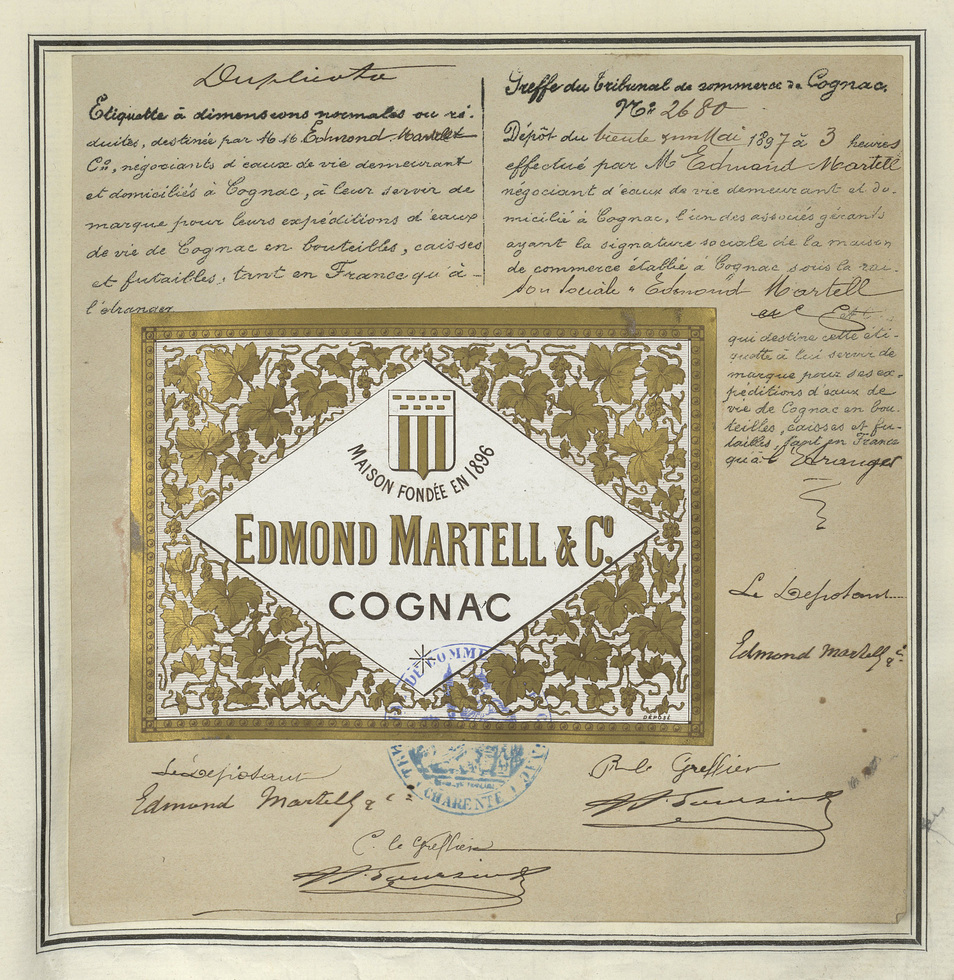 Duplicata
Etiquette à dimensions normales ou ré-
duites, destinée par M M Edmond Martell &
Co, négociants d'eaux de vie demeurant
et domiciliés à Cognac, à leur servir de
marque pour leurs expéditions d'eaux
de vie de Cognac en bouteilles, caisses
et futailles, tant en France qu'à -
l'étranger
Greffe du Tribunal de commerce de Cognac.
No 2680
Dépôt du trente un Mai 1897 à 3 heures
effectué par M Edmond Martell
négociant d'eaux de vie demeurant et do-
micilié à Cognac, l'un des associés gérants
ayant la signature sociale de la maison
de commerce établie à Cognac sous la rai-
son sociale "Edmond Martell
et C
qui destine cette éti-
quette à lui servir de
marque pour ses ex-
péditions d'eaux de
vie de Cognac en bou-
teilles, caisses et fu-
tailles, tant en France
qu'à l'étranger
MAISON FONDÉE EN 1896
EDMOND MARTELL & Co.
COGNAC
DÉPOSÉ
Le Déposant
Edmond Martell & Cie
DE COMME
CHARENTE
Le Déposant
Edmond Martell & Cie
P. le Greffier
C. le Greffier